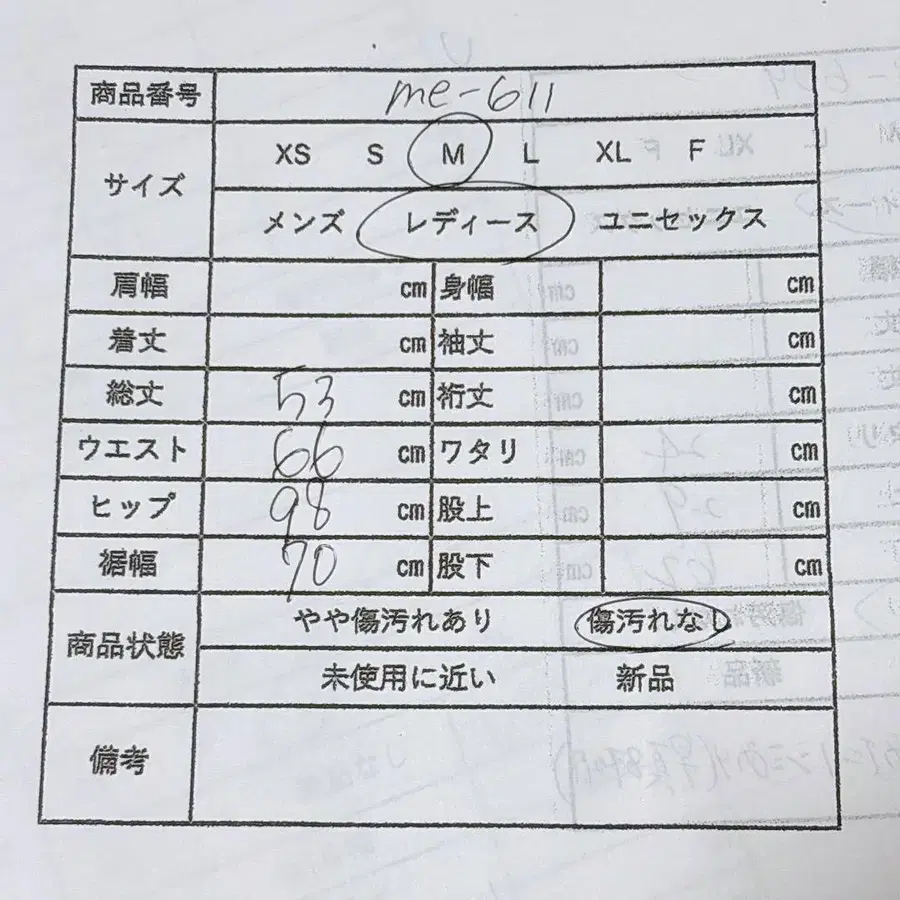 商品番号 me-611
サイズ XS S M L XL F
メンズ レディース ユニセックス
肩幅 cm 身幅 cm
着丈 cm 袖丈 cm
総丈 53 cm 裄丈 cm
ウエスト 66 cm ワタリ cm
ヒップ 98 cm 股上 cm
裾幅 70 cm 股下 cm
商品状態 やや傷汚れあり 傷汚れなし
未使用に近い 新品
備考